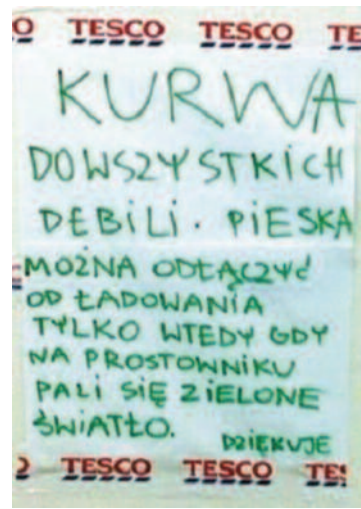 O TESCO TESCO TE
KURWA
DOWSZYSTKICH
DEBILI. PIESKA
MOŻNA ODŁĄCZYĆ
OD ŁADOWANIA
TYLKO WTEDY GDY
NA PROSTOWNIKU
PALI SIĘ ZIELONE
ŚWIATŁO.
DZIĘKUJE
O TESCO TESCO TES